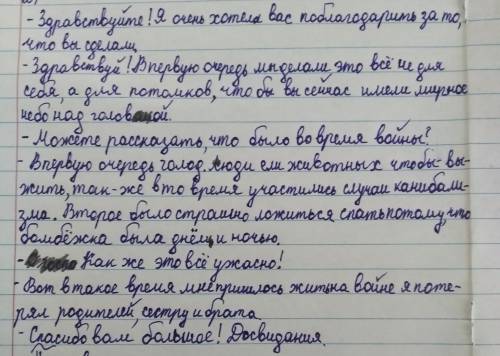 - Здравствуйте! Я очень хотела вас поблагодарить за то,
что вы сделали,
- Здравствуй! Впервую очередь мы делали это всё не для
себя, а для потомков, что бы вы сейчас имели мирное
небо над головой.
- Можете рассказать, что было во время войны?
- Впервую очередь голод. Люди ели животных чтобы вы-
жить, так-же в то время участились случаи канибали-
зма. Второе было страшно ложиться спать потому, что
бомбёжка была днём и ночью.
- Как же это всё ужасно!
- Вот в такое время мне пришлось жить на войне я поте-
рял родителей, сестру и брата.
- Спасибо вам большое! Досвидания.